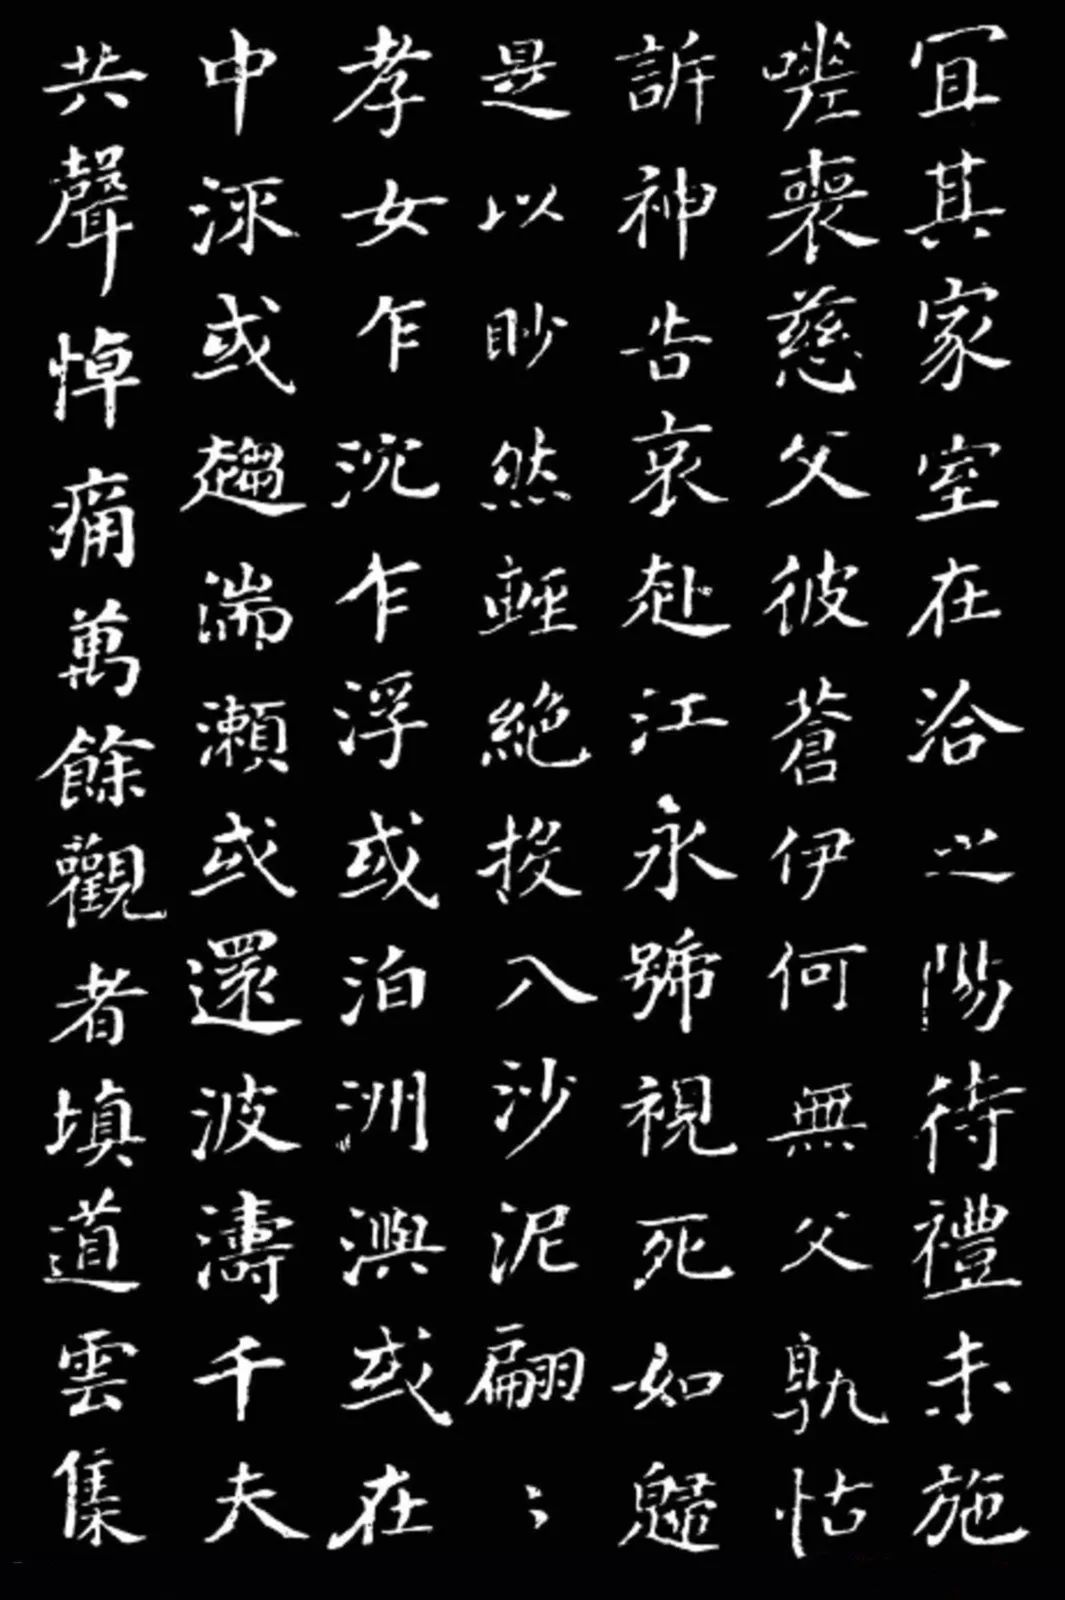 宜其家室在洽之陽待禮未施
嗟喪慈父彼蒼伊何無父孰怙
訴神告哀赴江永號視死如歸
是以眇然輕絕投入沙泥翩〻
孝女乍沈乍浮或泊洲嶼或在
中流或趨湍瀨或還波濤千夫
共聲悼痛萬餘觀者填道雲集